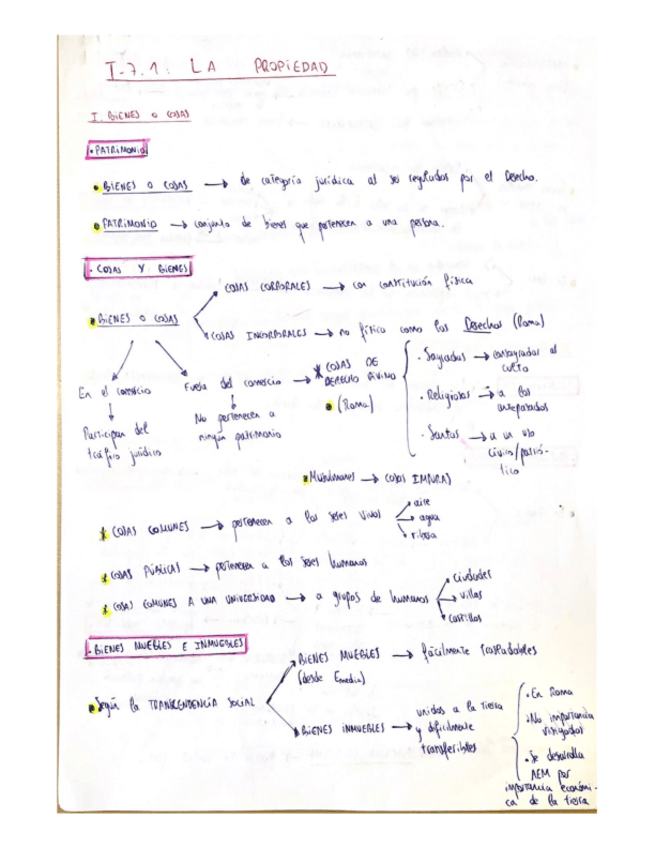 T-7.1: LA PROPIEDAD
I. BIENES O COSAS
• PATRIMONIO
• BIENES O COSAS → de categoría jurídica al ser regulados por el Derecho.
• PATRIMONIO → conjunto de bienes que pertenecen a una persona.
• COSAS Y BIENES
COSAS CORPORALES → con constitución física
• BIENES O COSAS
COSAS INCORPORALES → no física como los Derechos (Roma)
En el comercio
↓
Participan del
tráfico jurídico
Fuera del comercio →
↓
No pertenecen a
ningún patrimonio
* COSAS DE
DERECHO DIVINO
• (Roma)
• Sagradas → consagradas al
culto
• Religiosas → a los
antepasados
• Santas → a un uso
cívico/patrió-
tico
• Musulmanes → cosas IMPURAS
* COSAS COMUNES → pertenecen a los seres vivos
→ aire
→ agua
→ ribera
* COSAS PÚBLICAS → pertenecen a los seres humanos
* COSAS COMUNES A UNA UNIVERSIDAD → a grupos de humanos
ciudades
villas
castillos
• BIENES MUEBLES E INMUEBLES
BIENES MUEBLES → fácilmente trasladables
(desde Emedia)
• Según la TRANSCENDENCIA SOCIAL
BIENES INMUEBLES →
unidos a la tierra
y difícilmente
transferibles
• En Roma
• No importancia
• Se desarrolla
AEM por
importancia económi-
ca de la tierra